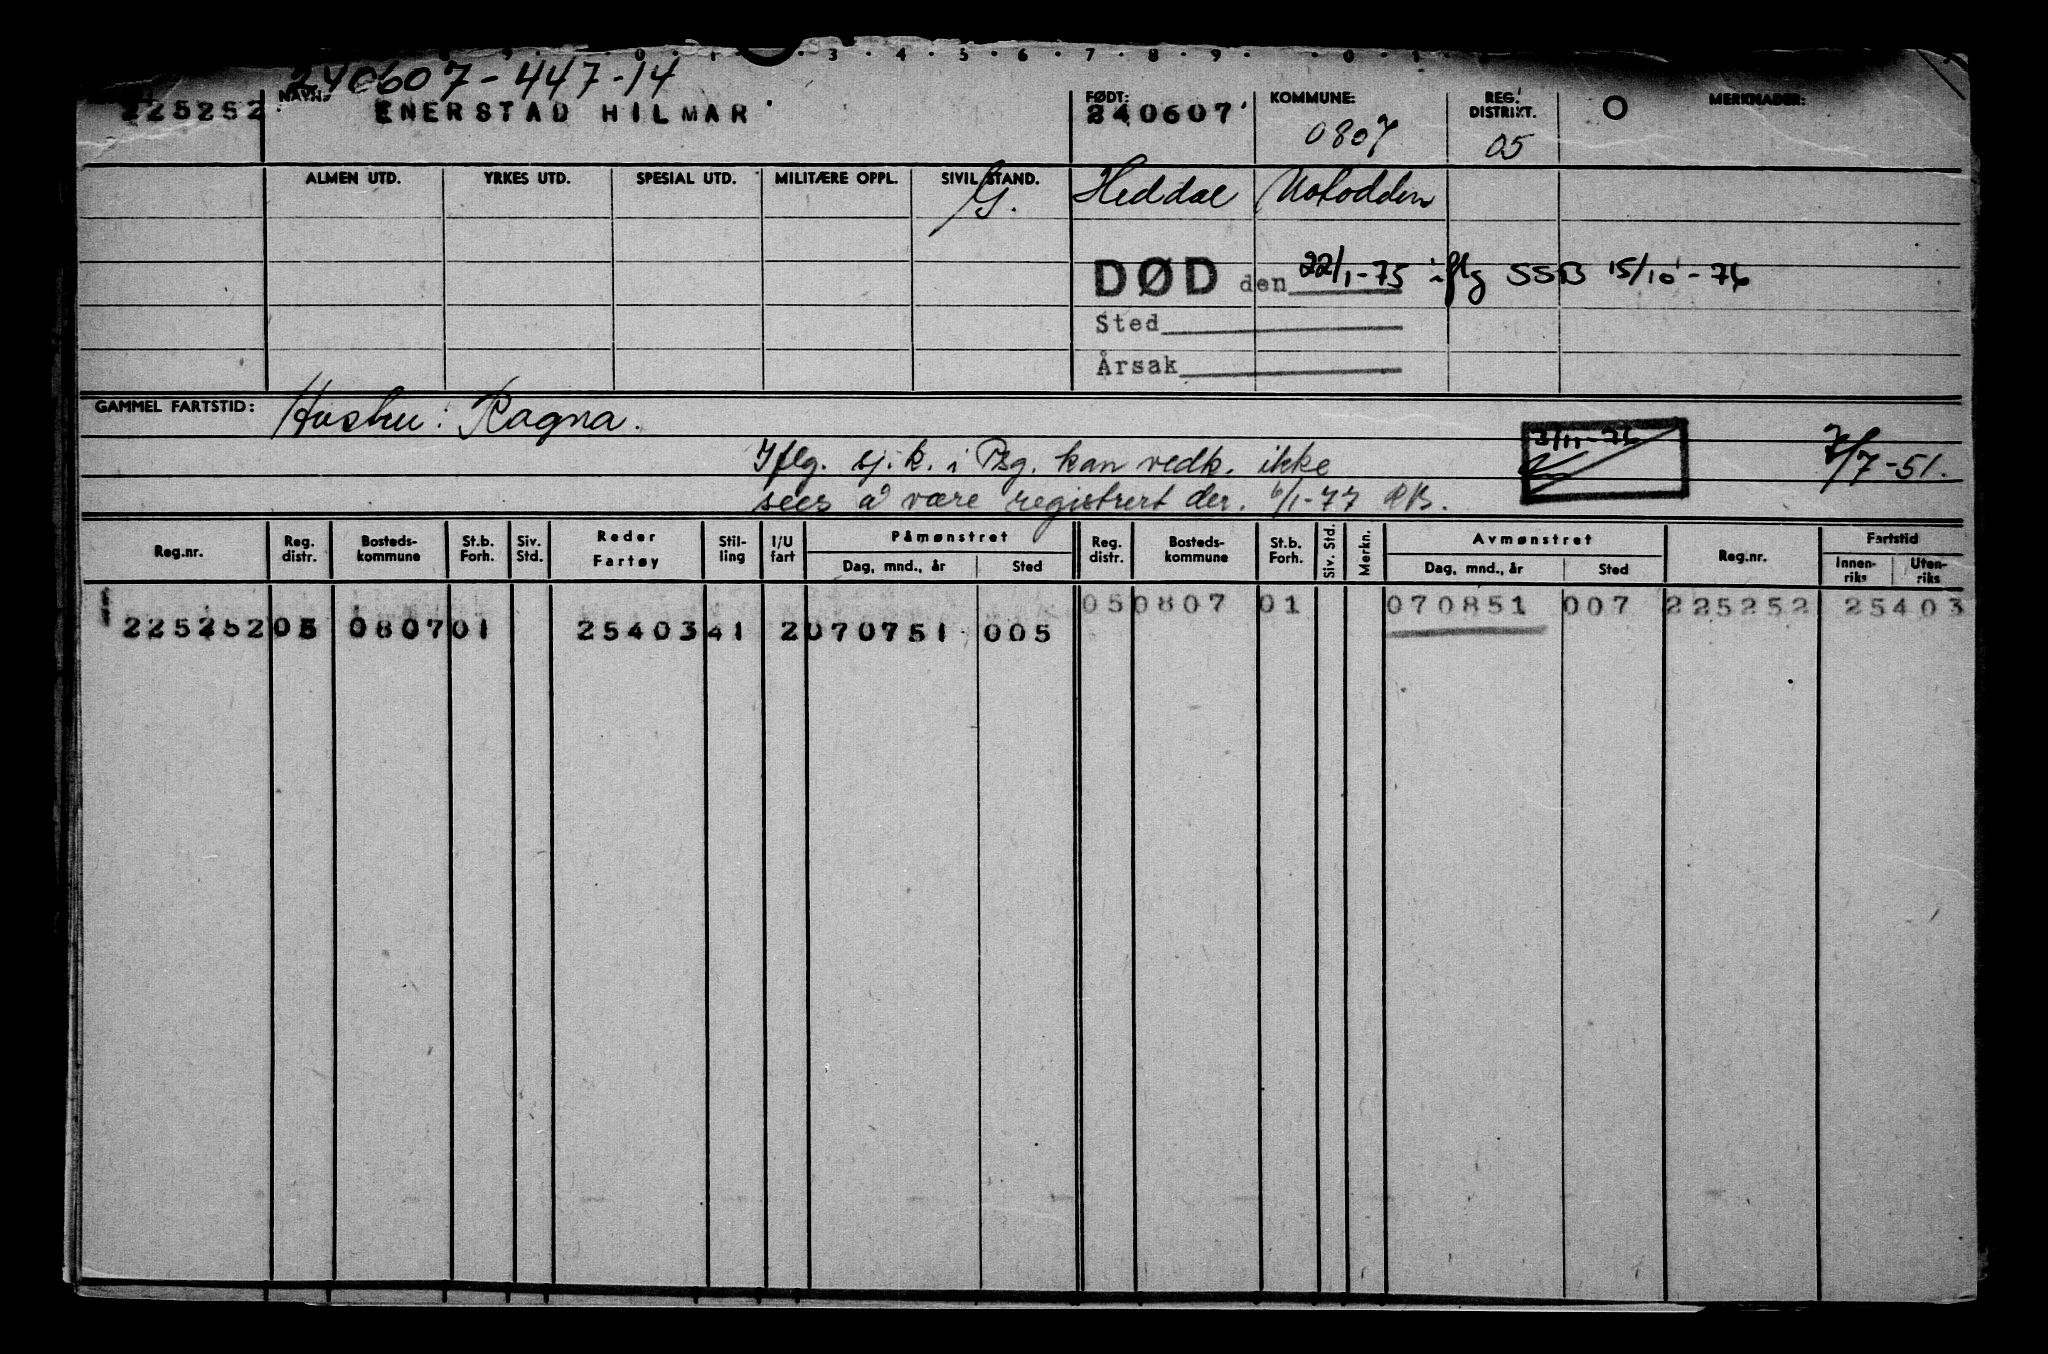 9 . 0 . 1 . 3 . 4 . 5 . 6 . 7 . 8 . 9 . . 0 . 1
240607-447-14
225252 NAVN: ENERSTAD HILMAR FØDT: 240607 KOMMUNE: 0807 REG. DISTRIKT. 05 O MERKNADER:
ALMEN UTD. YRKES UTD. SPESIAL UTD. MILITÆRE OPPL. SIVIL STAND. G. Heddal Notodden
DØD den 22/1-75 iflg SSB 15/10-76
Sted
Årsak
GAMMEL FARTSTID: Hustru: Ragna.
3/11-76 7/7-51.
Iflg. sj.k. i Psg. kan vedk. ikke
sees å være registrert der. 6/1-77 RB.
Reg.nr. Reg. distr. Bosteds-kommune St.b. Forh. Siv. Std. Reder Fartøy Stil-ling I/U fart Påmønstret Dag, mnd., år Sted Reg. distr. Bosteds-kommune St.b. Forh. Siv. Std. Merkn. Avmønstret Dag, mnd., år Sted Reg.nr. Fartstid Innen-riks Uten-riks
05 0807 01 070851 007 225252 25403
225252 05 0807 01 25403 41 2 070751 005